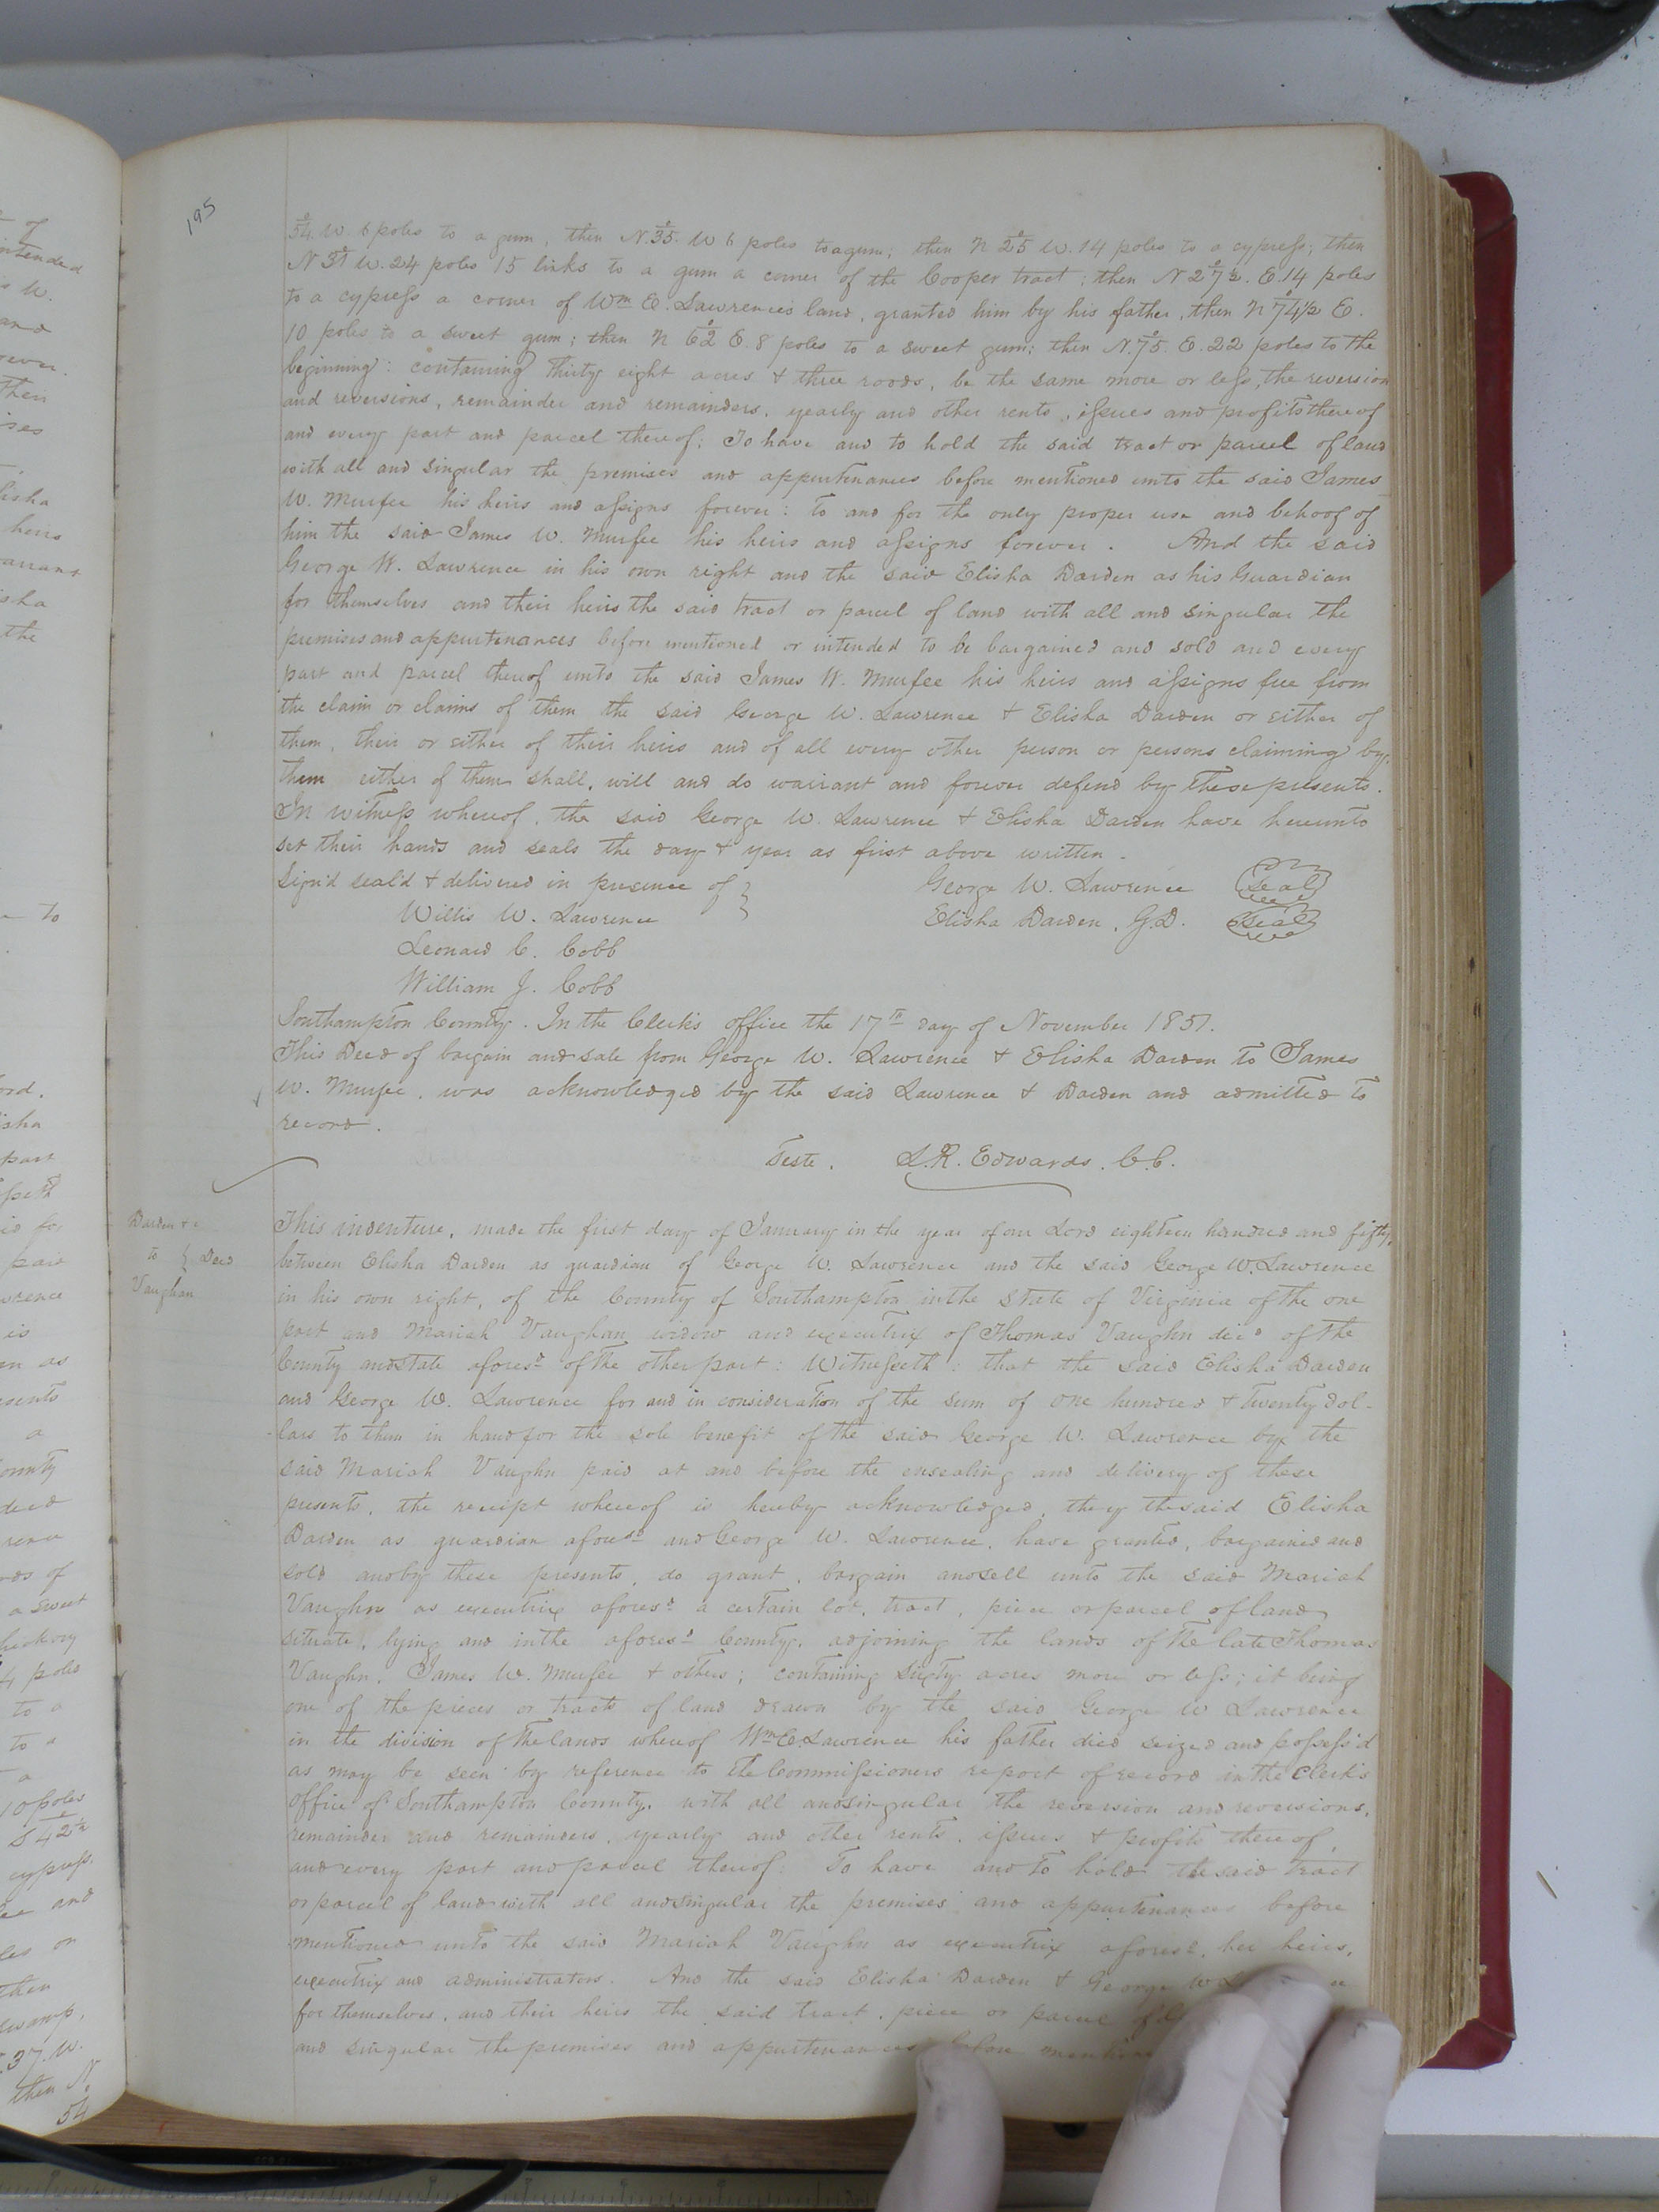 195
54°. W. 6 poles to a gum; then N. 35°. W 6 poles to a gum; then N 25° W. 14 poles to a cypress; then
N 31° W. 24 poles 15 links to a gum a corner of the Cooper tract; then N 27½°. E. 14 poles
to a cypress a corner of Wm E. Lawrence's land, granted him by his father, then N 74½° E.
10 poles to a sweet gum; then N 62° E. 8 poles to a sweet gum; then N. 75°. E. 22 poles to the
beginning: containing Thirty eight acres & three roods, be the same more or less, the reversion
and reversions, remainder and remainders, yearly and other rents, issues and profits thereof
and every part and parcel thereof; To have and to hold the said tract or parcel of land
with all and singular the premises and appurtenances before mentioned unto the said James
W. Murfee his heirs and assigns forever: to and for the only proper use and behoof of
him the said James W. Murfee his heirs and assigns forever. And the said
George W. Lawrence in his own right and the said Elisha Darden as his Guardian
for themselves and their heirs the said tract or parcel of land with all and singular the
premises and appurtenances before mentioned or intended to be bargained and sold and every
part and parcel thereof unto the said James W. Murfee his heirs and assigns free from
the claim or claims of them the said George W. Lawrence & Elisha Darden or either of
them, their or either of their heirs and of all every other person or persons claiming by,
them either of them shall, will and do warrant and forever defend by these presents.
In witness whereof, the said George W. Lawrence & Elisha Darden have hereunto
set their hands and seals the day & year as first above written.
Sign'd seal'd & delivered in presence of } George W. Lawrence Seal
Willis W. Lawrence Elisha Darden, G.D. Seal
Leonard C. Cobb
William J. Cobb
Southampton County. In the Clerk's office the 17th day of November 1851.
This Deed of bargain and sale from George W. Lawrence & Elisha Darden to James
W. Murfee, was acknowledged by the said Lawrence & Darden and admitted to
record.
Teste. L.R. Edwards. C.C.
Darden &c
to } Deed
Vaughan
This indenture, made the first day of January in the year of our Lord eighteen hundred and fifty,
between Elisha Darden as guardian of George W. Lawrence and the said George W. Lawrence
in his own right, of the County of Southampton in the State of Virginia of the one
part and Mariah Vaughan widow and executrix of Thomas Vaughn dec'd of the
County and state afores'd of the other part: Witnesseth: that the said Elisha Darden
and George W. Lawrence for and in consideration of the sum of one hundred & twenty dol-
-lars to them in hand for the sole benefit of the said George W. Lawrence by the
said Mariah Vaughn paid at and before the ensealing and delivery of these
presents, the receipt whereof is hereby acknowledged, they the said Elisha
Darden as guardian afores'd and George W. Lawrence, have granted, bargained and
sold and by these presents, do grant, bargain and sell unto the said Mariah
Vaughn as executrix afores'd a certain lot, tract, piece or parcel of land
situate, lying and in the afores'd County, adjoining the lands of the late Thomas
Vaughn, James W. Murfee & others; containing Sixty acres more or less; it being
one of the pieces or tracts of land drawn by the said George W Lawrence
in the division of the lands whereof Wm E. Lawrence his father died seized and possess'd
as may be seen by reference to the Commissioners report of record in the Clerk's
Office of Southampton County. with all and singular the reversion and reversions,
remainder and remainders, yearly and other rents, issues & profits thereof,
and every part and parcel thereof. To have and to hold the said tract
or parcel of land with all and singular the premises and appurtenances before
mentioned unto the said Mariah Vaughn as executrix afores'd, her heirs,
executrix and administrators. And the said Elisha Darden & George W
for themselves, and their heirs the said tract, piece or parcel of
and singular the premises and appurtenances before